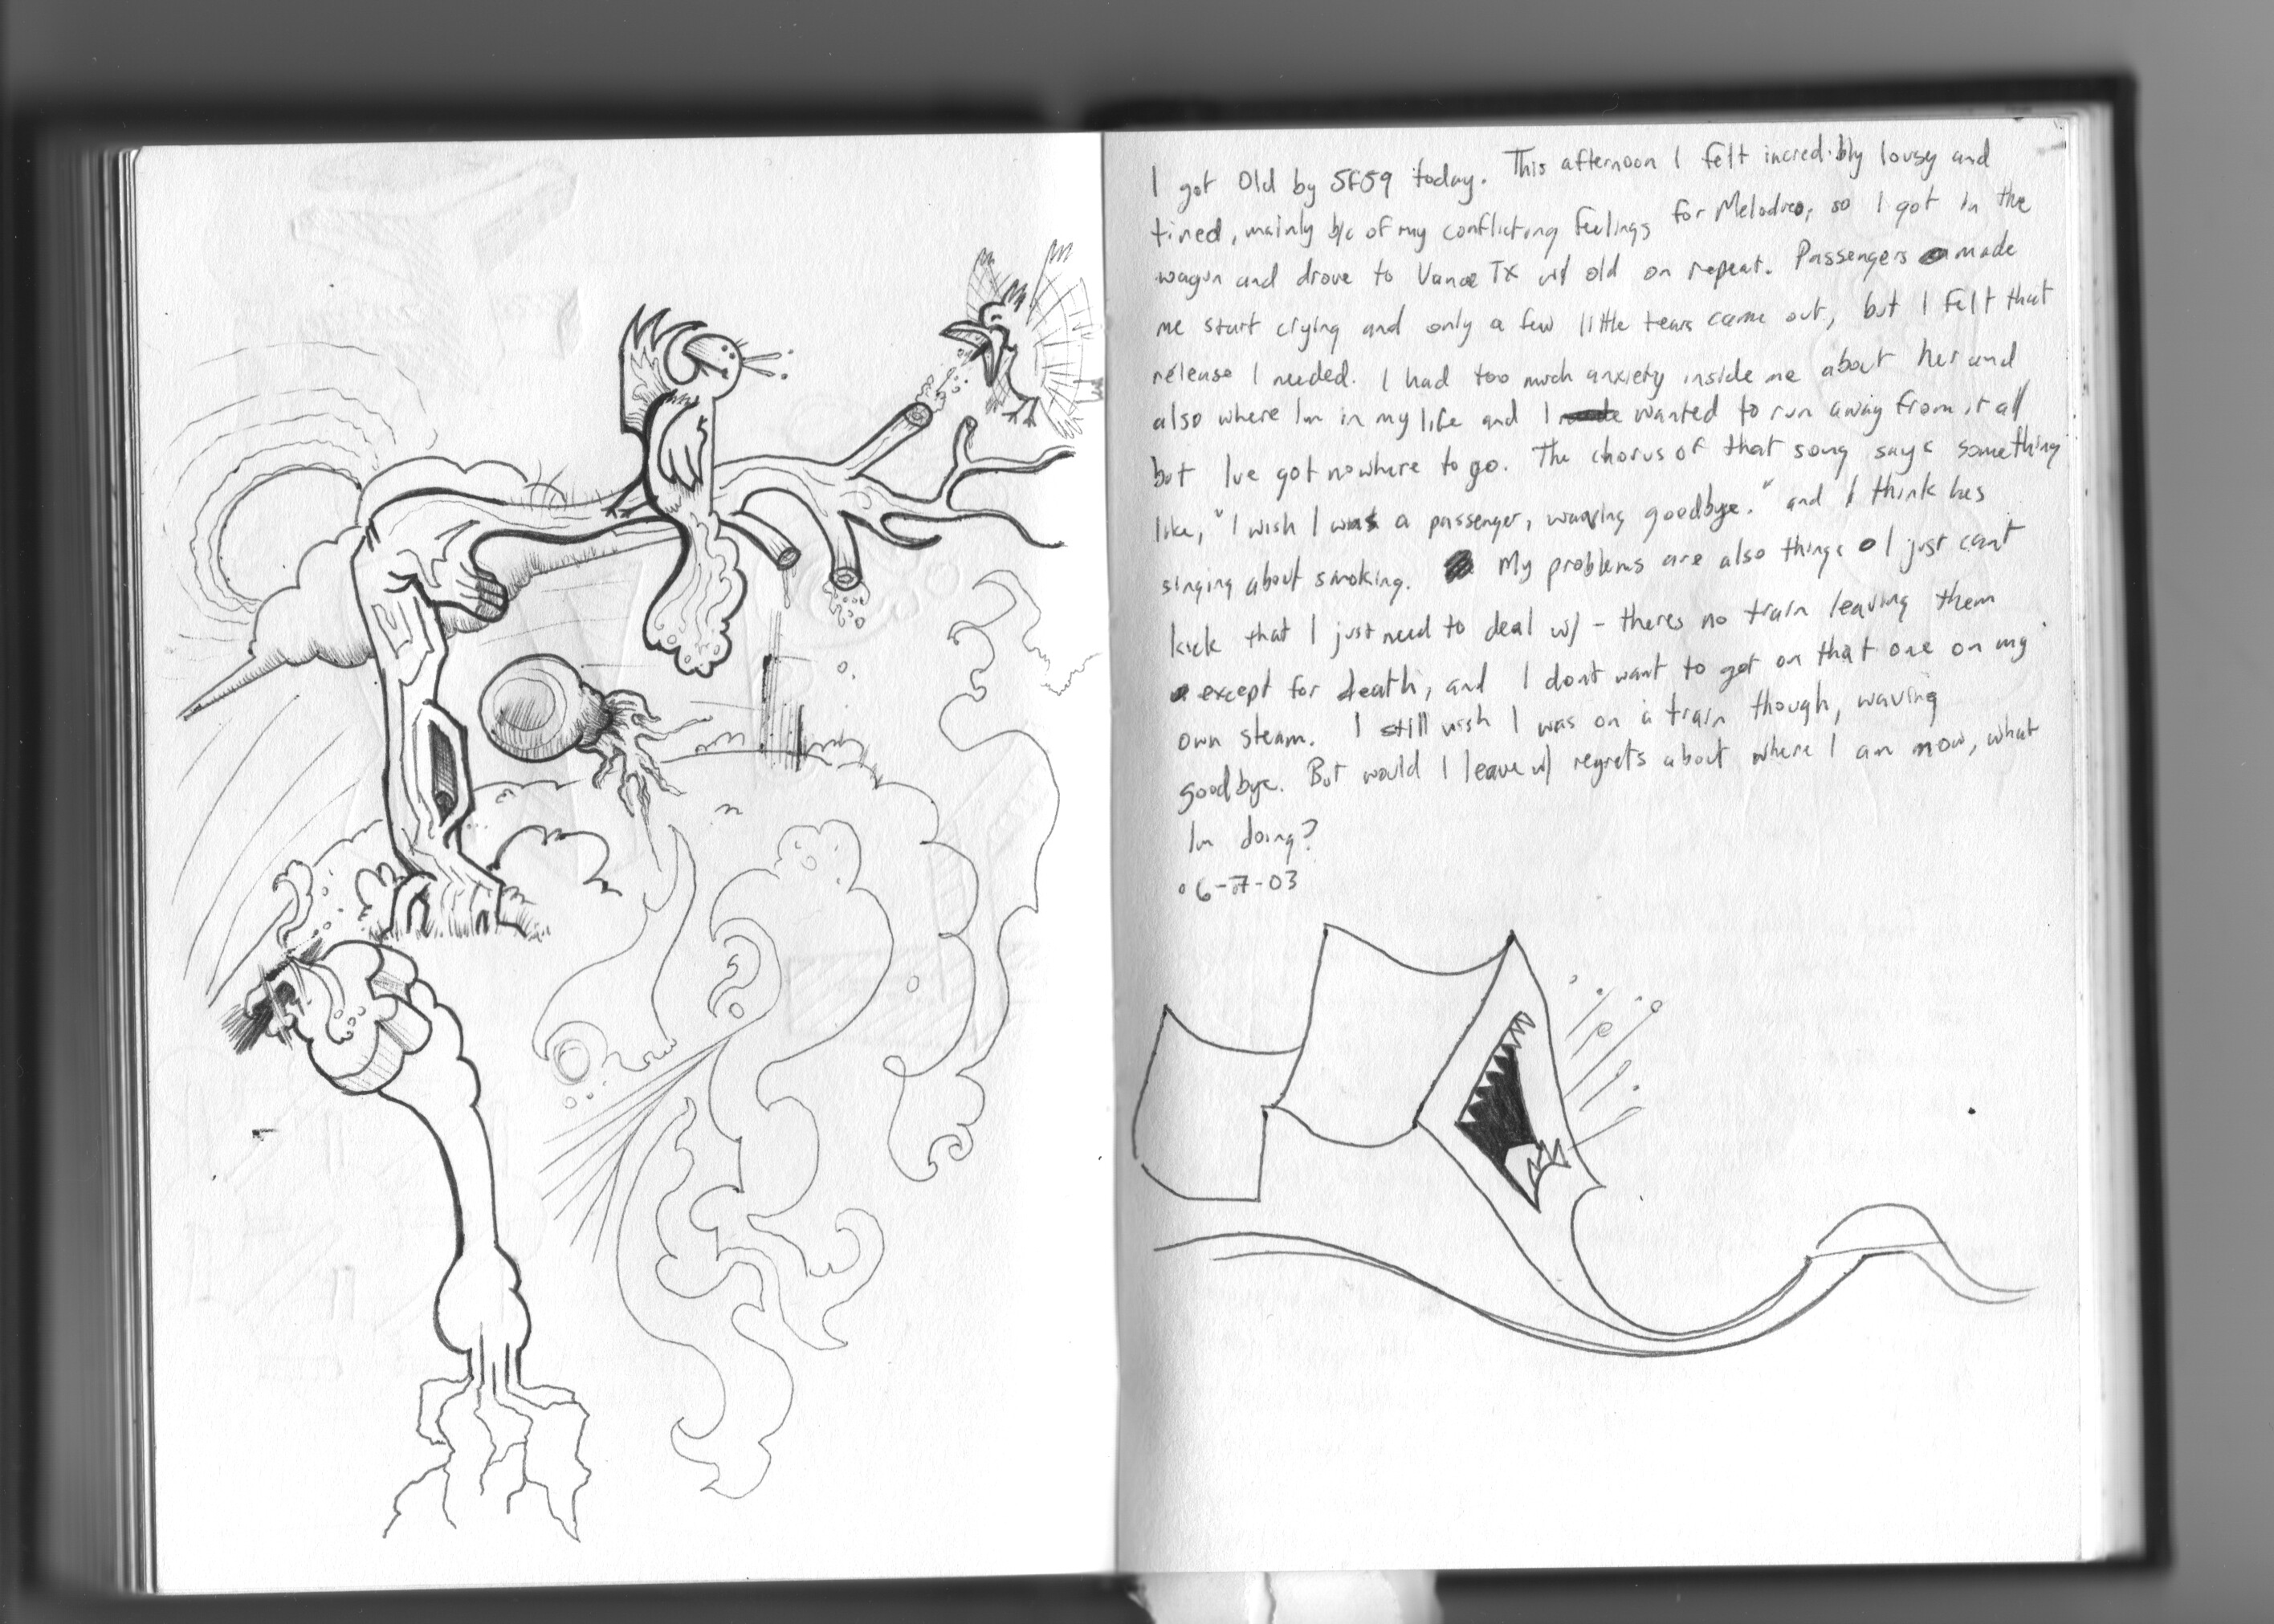 I got Old by SF59 today. This afternoon I felt incredibly lousy and
tired, mainly b/c of my conflicting feelings for so I got in the
wagon and drove to Vance TX w/ old on repeat. Passengers made
me start crying and only a few little tears came out, but I felt that
release I needed. I had too much anxiety inside me about her and
also where Im in my life and I wanted to run away from it all
but Ive got nowhere to go. The chorus of that song says something
like, "I wish I was a passenger, waving goodbye." and I think hes
singing about smoking. My problems are also things I just cant
kick that I just need to deal w/ - theres no train leaving them
except for death, and I dont want to get on that one on my
own steam. I still wish I was on a train though, waving
goodbye. But would I leave w/ regrets about where I am now, what
Im doing?
6-7-03